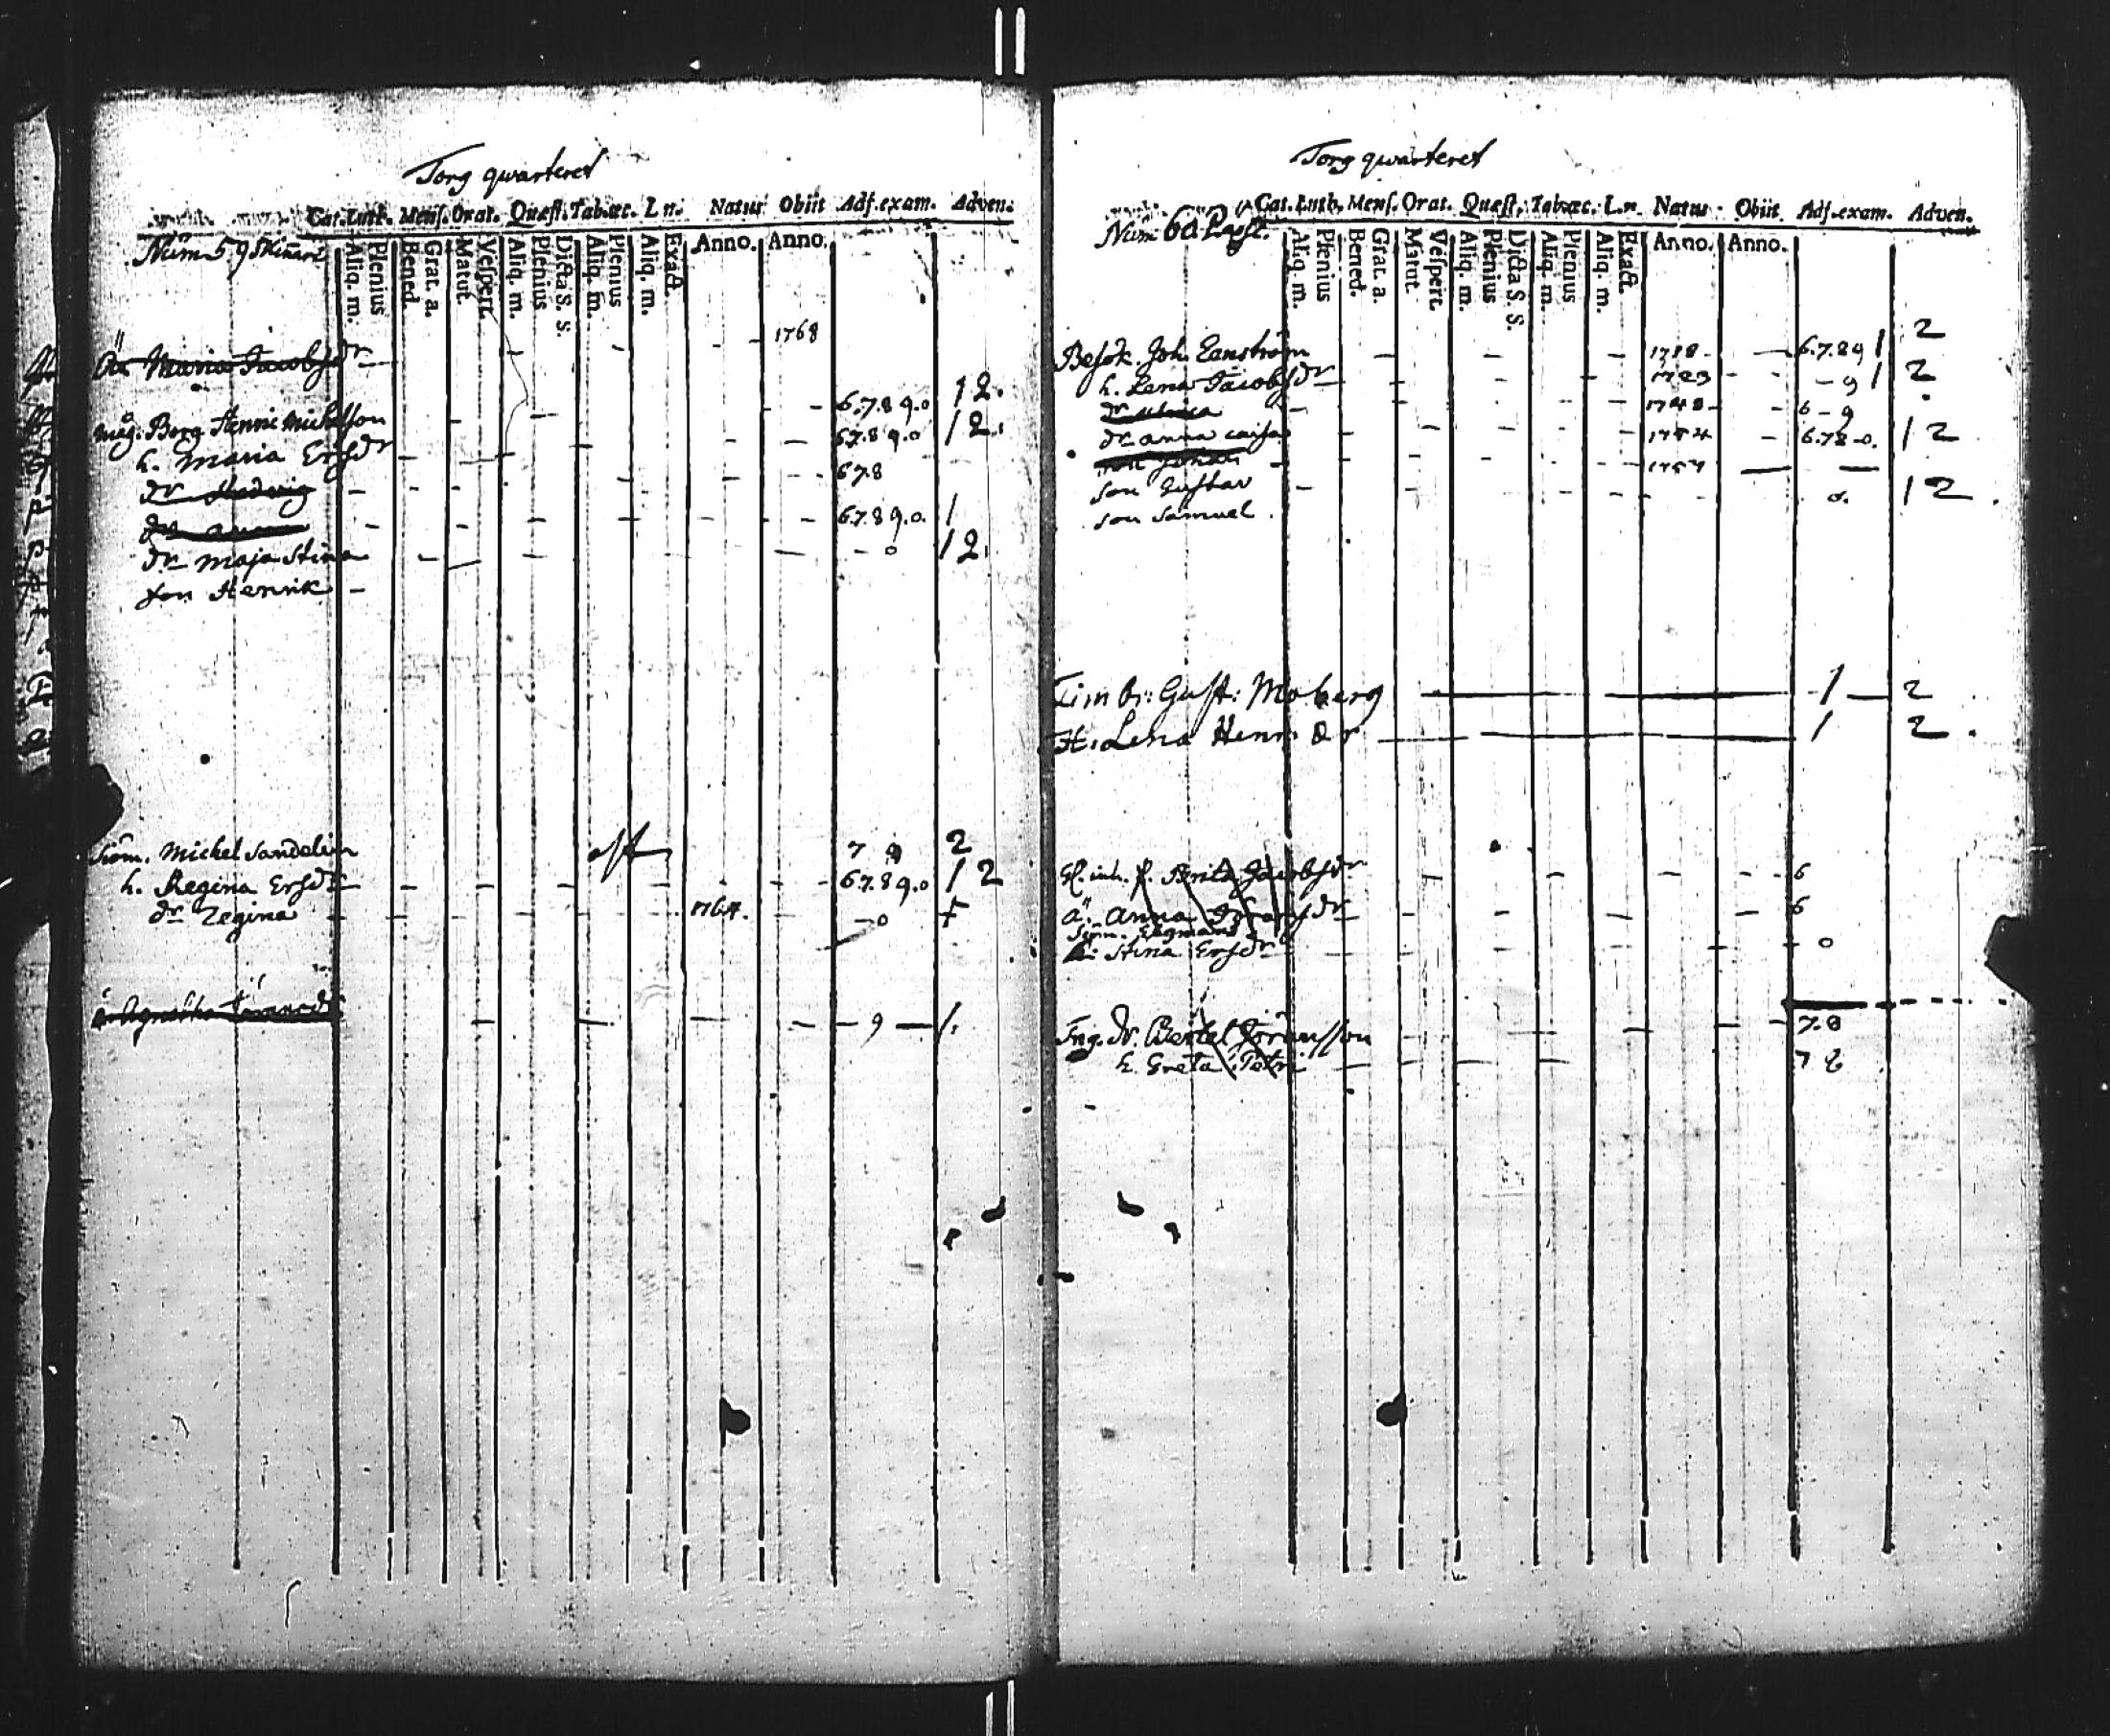 Torg qwarteret
Cat. Luth. Mens. Orat. Quæst. Tab. œc. L n. Natus Obiit Adf. exam. Adven.
Num 59
Aliq. m. Plenius Bened. Grat. a. Matut. Vespert. Aliq. m. Plenius Dicta S. S. Aliq. m. Plenius Aliq. m. Exact. Anno. Anno.
Maria Jacobsdr 1768
Borg Henric Mickelsson 6.7.8 9.0 12.
h. Maria Ersdr 67.8 9.0 12.
dr Hedwig 678
dr anna 67.8 9.0. 1
dr Maja Stina 0 12.
son Henrik
Michel Sandelin 7 9 2
h. Regina Ersdr 67.8 9.0 12
dr Regina 1764. 0 +
Agnetha 9 1.
Torg qwarteret
Cat. Luth. Mens. Orat. Quæst. Tab. œc. L. n. Natus Obiit Adf. exam. Adven.
Num 60
Aliq. m. Plenius Bened. Grat. a. Matut. Vespert. Aliq. m. Plenius Dicta S. S. Aliq. m. Plenius Aliq. m. Exact. Anno. Anno.
Besök. Joh. 1718 6.7.89 1 2
h. Lena Jacobsdr 1723 9 1 2
dr 1748 6 - 9
dr anna caisa 1754 6.78-0. 12
son Johan 1757
son Gustav 0. 12
son Samuel
Timbr: Gust: Moberg 1 2
H: Lena Henr: Dr 1 2
Brita Jacobsdr 6
Anna 6
Stina Ersdr 0
Bertel Jöransson 7.8
h. Greta Petri 7 8